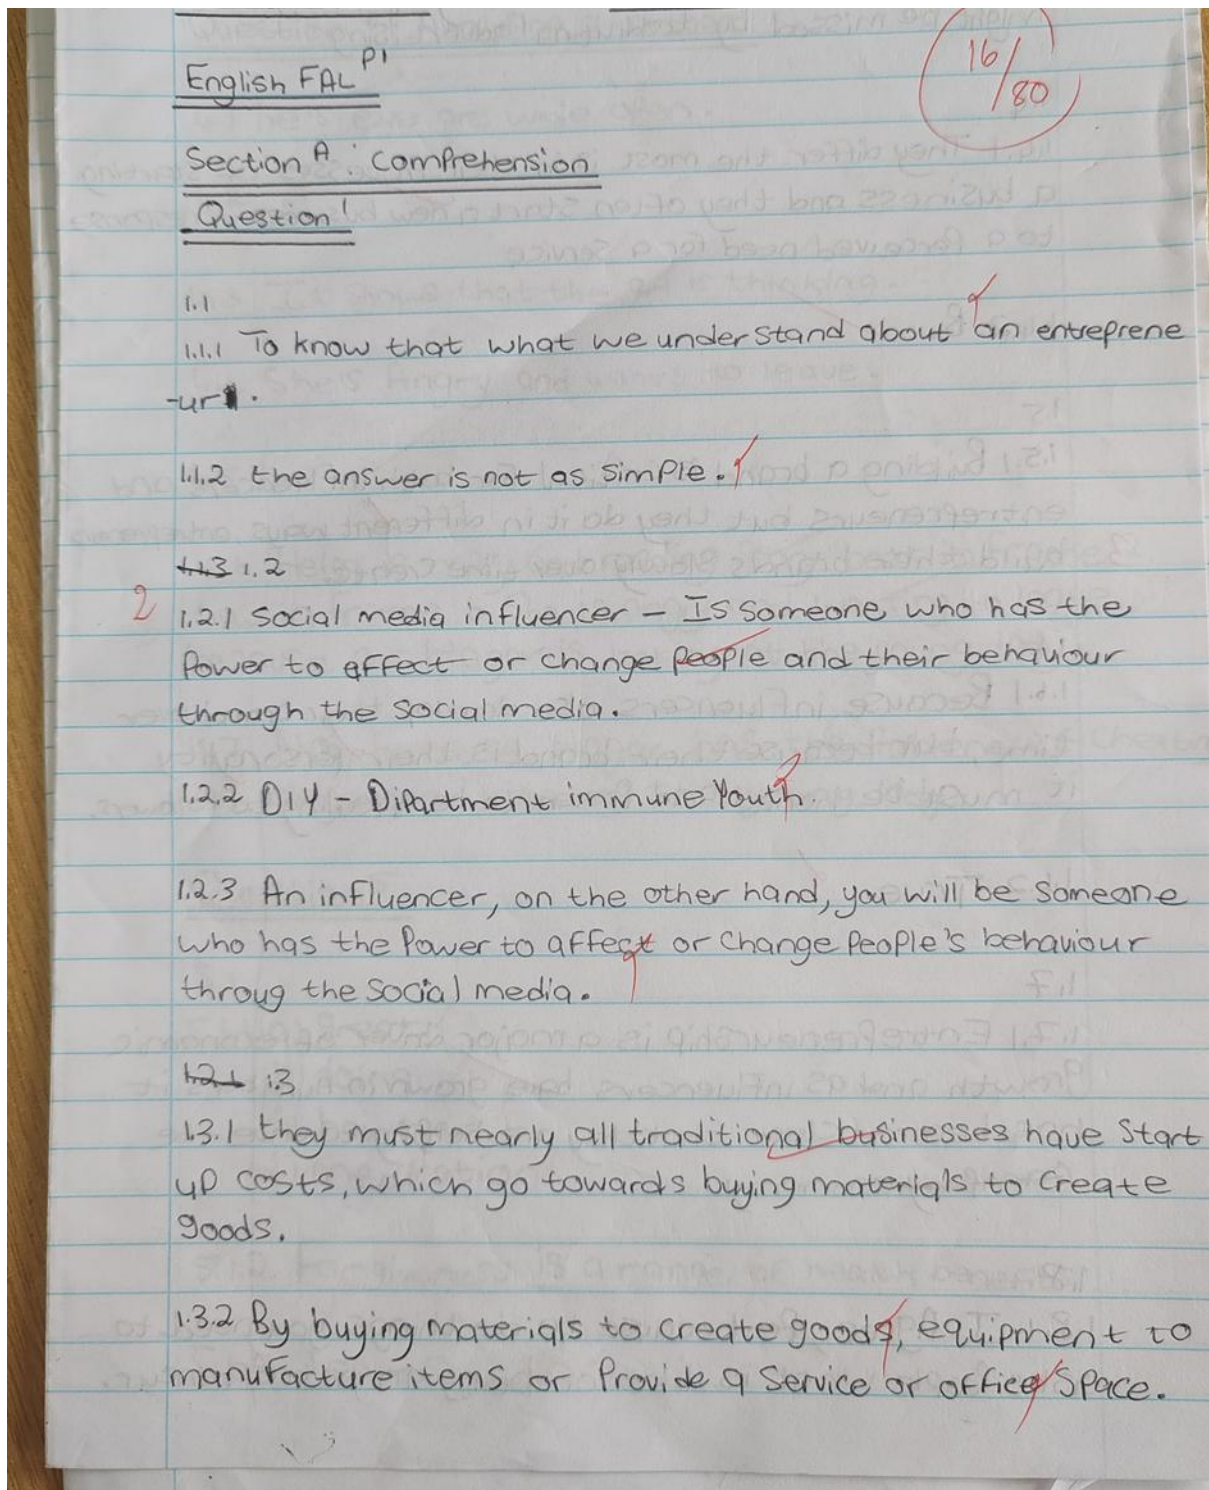 English FAL P1
16/80
Section A : Comprehension
Question 1
1.1
1.1.1 To know that what we understand about an entreprene
-ur.
1.1.2 the answer is not as simple.
1.1.3 1.2
2
1.2.1 Social media influencer – Is someone who has the
Power to affect or change people and their behaviour
through the social media.
1.2.2 DIY – Dipartment immune Youth.
1.2.3 An influencer, on the other hand, you will be someone
who has the Power to affect or change People's behaviour
throug the social media.
1.2.1 1.3
1.3.1 they must nearly all traditional businesses have Start
up costs, which go towards buying materials to create
goods.
1.3.2 By buying materials to create goods, equipment to
manufacture items or Provide a Service or office Space.